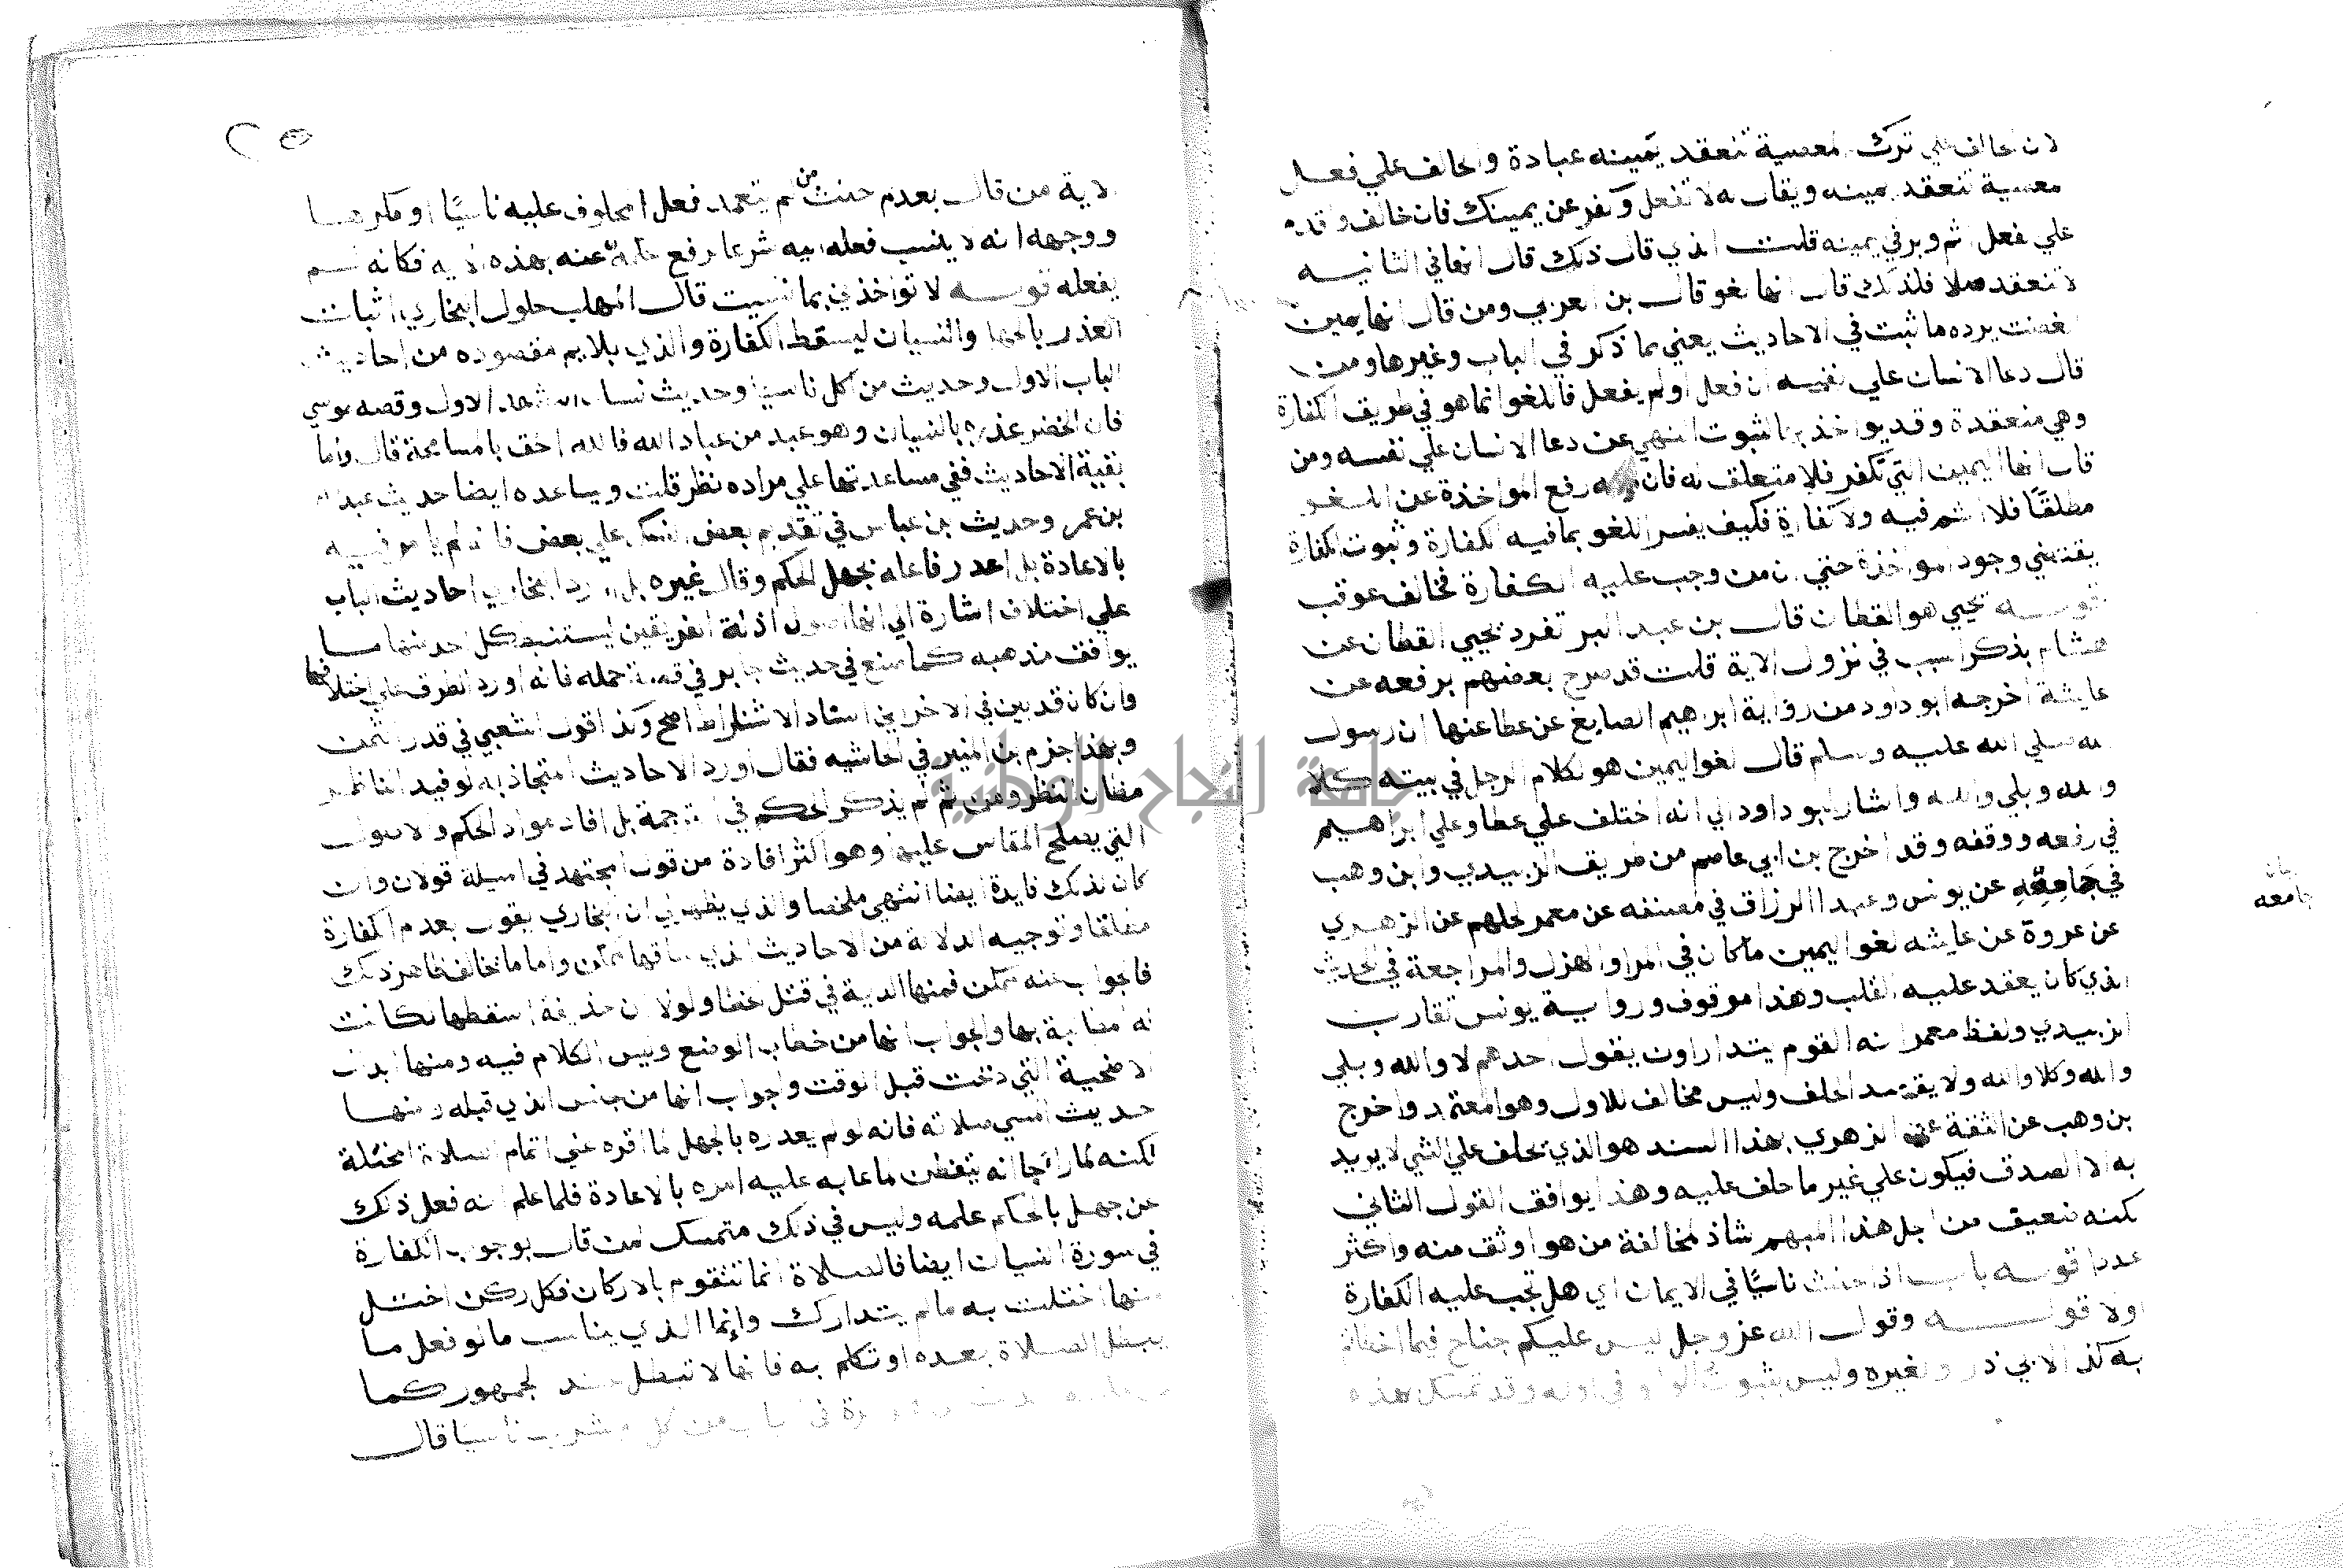 لان الحالف علي ترك معصية تنعقد يمينه عبادة والحالف علي فعل
معصية تنعقد يمينه ويقال له لا تفعل وكفر عن يمينك فان خالف وقدم
علي الفعل اثم وبر في يمينه قلت الذي قال ذلك قال انها في الثانيه
لا تنعقد اصلا فلذلك قال انها لغو قال بن العربي ومن قال انها يمين
الغضب يرده ما ثبت في الاحاديث يعني مما ذكر في الباب وغيرها ومن
قال دعا الانسان علي نفسه ان فعل اولم يفعل فاللغو انما هو في طريق الكفارة
وهي منعقدة وقد يواخذ بها لثبوت النهي عن دعا الانسان علي نفسه ومن
قال انها اليمين التي تكفر فلا متعلق له فان الله رفع المواخذة عن اللغو
مطلقا فلا اثم فيه ولا كفارة فكيف يفسر اللغو بما فيه الكفارة وثبوت الكفارة
يقتضي وجود المواخذة حتي ان من وجب عليه الكفارة فخالف عوقب
قوله يحيي هو القطان قال بن عبد البر تفرد يحيي القطان عن
هشام بذكر السبب في نزول الاية قلت قد صرح بعضهم برفعه عن
عايشة اخرجه ابو داود من رواية ابراهيم الصايغ عن عطا عنها ان رسول
الله صلي الله عليه وسلم قال لغو اليمين هو كلام الرجل في بيته كلا
والله وبلي والله واشار ابو داود الي انه اختلف علي عطا وعلي ابراهيم
في رفعه ووقفه وقد اخرج بن ابي عاصم من طريق الزبيدي وابن وهب
في جامعه عن يونس وعبد الرزاق في مصنفه عن معمر كلهم عن الزهري
بيان
جامعه
عن عروة عن عايشه لغو اليمين ما كان في المرا والهزل والمراجعة في الحديث
الذي كان يعقد عليه القلب وهذا موقوف ورواية يونس تقارب
الزبيدي ولفظ معمر انه القوم يتداراون يقول احدهم لا والله وبلي
والله وكلا والله ولا يقصد الحلف وليس مخالف للاول وهو المعتمد واخرج
بن وهب عن الثقة عن الزهري بهذا السند هو الذي يحلف علي الشي لا يريد
به الا الصدق فيكون علي غير ما حلف عليه وهذا يوافق القول الثاني
لكنه ضعيف من اجل هذا المبهم شاذ لمخالفة من هو اوثق منه واكثر
عددا قوله باب اذا حنث ناسيا في الايمان اي هل تجب عليه الكفارة
اولا قوله وقول الله عز وجل ليس عليكم جناح فيما اخطاتم
به كذا لابي ذر ولغيره وليس بثبوت الواو في اوله وقد تمسك بهذه
الاية من قال بعدم حنث من لم يتعمد فعل المحلوف عليه ناسيا او مكرها
ووجهه انه لا ينسب فعله اليه شرعا لرفع حكمه عنه بهذه الاية فكانه لم
يفعله قوله لا تواخذني بما نسيت قال المهلب حاول البخاري اثبات
العذر بالجهل والنسيان ليسقط الكفارة والذي يلايم مقصوده من احاديث
الباب الاول وحديث من اكل ناسيا وحديث نسيان التشهد الاول وقصه موسي
فان الخضر عذره بالنسيان وهو عبد من عباد الله فالله احق بالمسامحة قال واما
بقية الاحاديث ففي مساعدتها علي مراده نظر قلت ويساعده ايضا حديث عبد الله
بن عمر وحديث بن عباس في تقديم بعض النسك علي بعض فانه لم يامر فيه
بالاعادة بل اعذر فاعله بجهل الحكم وقال غيره بل اورد البخاري احاديث الباب
علي اختلاف اشارة الي انها اصول ادلة الفريقين ليستنبط كل احد منها ما
يوافق مذهبه كما صنع في حديث جابر في قصة جمله فانه اورد الطرق علي اختلافها
وان كان قد بين في الاخر ان اسناد الاشتراط اصح وكذا قول الشعبي في قدر الثمن
وبهذا جزم بن المنير في الحاشيه فقال اورد الاحاديث المتجاذبه ليفيد الناظر
مظان النظر ومن ثم لم يذكر الحكم في الترجمة بل افاد مواد الحكم والاصول
التي يصلح القياس عليها وهو اكثر افادة من قول المجتهد في المسيلة قولان وان
كان لذلك فايدة ايضا انتهي ملخصا والذي يظهر لي ان البخاري يقول بعدم الكفارة
مطلقا وتوجيه الدلالة من الاحاديث الذي ساقها ممكن واما ما خالف ظاهر ذلك
فالجواب عنه ممكن فمنها الدية في قتل الخطا ولولا ان حذيفة اسقطها لكانت
له مطالبة بها والجواب انها من خطاب الوضع وليس الكلام فيه ومنها ابدال
الاضحية التي ذبحت قبل الوقت والجواب انها من جنس الذي قبله ومنها
حديث المسي صلاته فانه لو لم يعذره بالجهل لما اقره علي اتمام الصلاة المختلة
لكنه لما رجا انه يتفطن لما عابه عليه امره بالاعادة فلما علم انه فعل ذلك
عن جهل بالحكم علمه وليس في ذلك متمسك لمن قال بوجوب الكفارة
في صورة النسيان ايضا فالصلاة انما تتقوم بالاركان فكل ركن اختل
منها اختلت به ما لم يتدارك وانما الذي يناسب ما لو فعل ما
يبطل الصلاة بعده او تكلم به فانها لا تبطل عند الجمهور كما
في الباب من اكل او شرب ناسيا قال